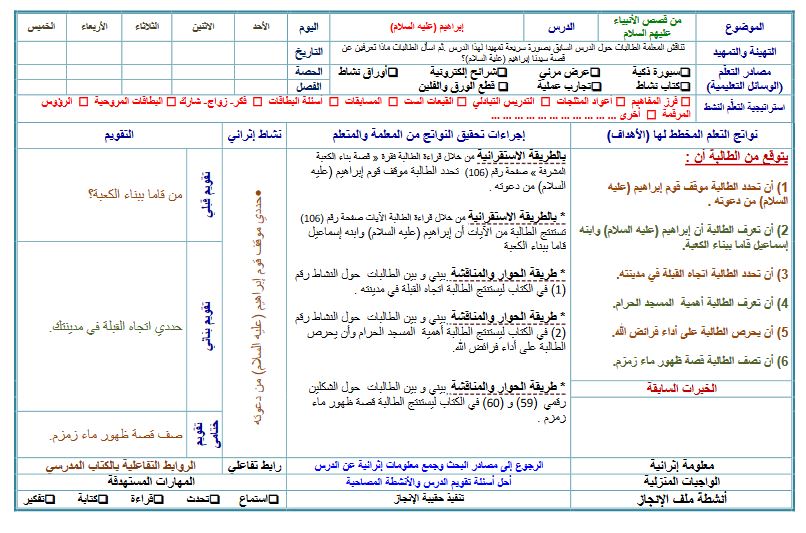 الموضوع
من قصص الأنبياء عليهم السلام
الدرس
إبراهيم (عليه السلام)
اليوم
الأحد
الاثنين
الثلاثاء
الأربعاء
الخميس
التهيئة والتمهيد
تناقش المعلمة الطالبات حول الدرس السابق بصورة سريعة تمهيدا لهذا الدرس .ثم اسأل الطالبات ماذا تعرفين عن
قصة سيدنا إبراهيم (عليه السلام)؟
التاريخ
مصادر التعلم
(الوسائل التعليمية)
❑سبورة ذكية ❑عرض مرئي ❑شرائح إلكترونية ❑أوراق نشاط
❑كتاب نشاط ❑تجارب عملية ❑ قطع الورق والفلين
الحصة
الفصل
استراتيجية التعلم النشط
□ فرز المفاهيم □ أعواد المثلجات □ التدريس التبادلي □ القبعات الست □ المسابقات □ اسئلة البطاقات □ فكر- زواج- شارك □ البطاقات المروحية □ الرؤوس
المرقمة □ أخرى ... ... ... ... ... ... ... ... ... ... ...
نواتج التعلم المخطط لها (الأهداف)
إجراءات تحقيق النواتج من المعلمة والمتعلم
نشاط إثرائي
التقويم
يتوقع من الطالبة أن :
1) أن تحدد الطالبة موقف قوم إبراهيم (عليه
السلام) من دعوته .
2) أن تعرف الطالبة أن إبراهيم (عليه السلام) وابنه
إسماعيل قاما ببناء الكعبة.
3) أن تحدد الطالبة اتجاه القبلة في مدينته.
4) أن تعرف الطالبة أهمية المسجد الحرام.
5) أن يحرص الطالبة على أداء فرائض الله.
6) أن تصف الطالبة قصة ظهور ماء زمزم.
الخبرات السابقة
بالطريقة الاستقرائية من خلال قراءة الطالبة فقرة « قصة بناء الكعبة
المشرفة » صفحة رقم (106) تحدد الطالبة موقف قوم إبراهيم (عليه
السلام) من دعوته .
* بالطريقة الاستقرائية من خلال قراءة الطالبة الآيات صفحة رقم (106)
تستنتج الطالبة من الآيات أن إبراهيم (عليه السلام) وابنه إسماعيل
قاما ببناء الكعبة
* طريقة الحوار والمناقشة ..بيني و بين الطالبات حول النشاط رقم
(1) في الكتاب ليستنتج الطالبة اتجاه القبلة في مدينته .
* طريقة الحوار والمناقشة ..بيني و بين الطالبات حول النشاط رقم
(2) في الكتاب تستنتج الطالبة أهمية المسجد الحرام وأن يحرص
الطالبة على أداء فرائض الله.
* طريقة الحوار والمناقشة ..بيني و بين الطالبات حول الشكلين
رقمي (59) و (60) في الكتاب ليستنتج الطالبة قصة ظهور ماء
زمزم .
●حددي موقف قوم إبراهيم (عليه السلام) من دعوته
تقويم قبلي
من قاما ببناء الكعبة؟
تقويم بنائي
حددي اتجاه القبلة في مدينتك.
تقويم ختامي
صف قصة ظهور ماء زمزم.
معلومة إثرائية
الرجوع إلى مصادر البحث وجمع معلومات إثرائية عن الدرس
رابط تفاعلي
الروابط التفاعلية بالكتاب المدرسي
الواجبات المنزلية
أحل أسئلة تقويم الدرس والأنشطة المصاحبة
المهارات المستهدفة
أنشطة ملف الإنجاز
تنفيذ حقيبة الإنجاز
❑استماع ❑تحدث ❑قراءة ❑كتابة ❑تفكير